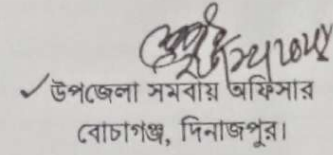 উপজেলা সমবায় অফিসার
বোচাগঞ্জ, দিনাজপুর।